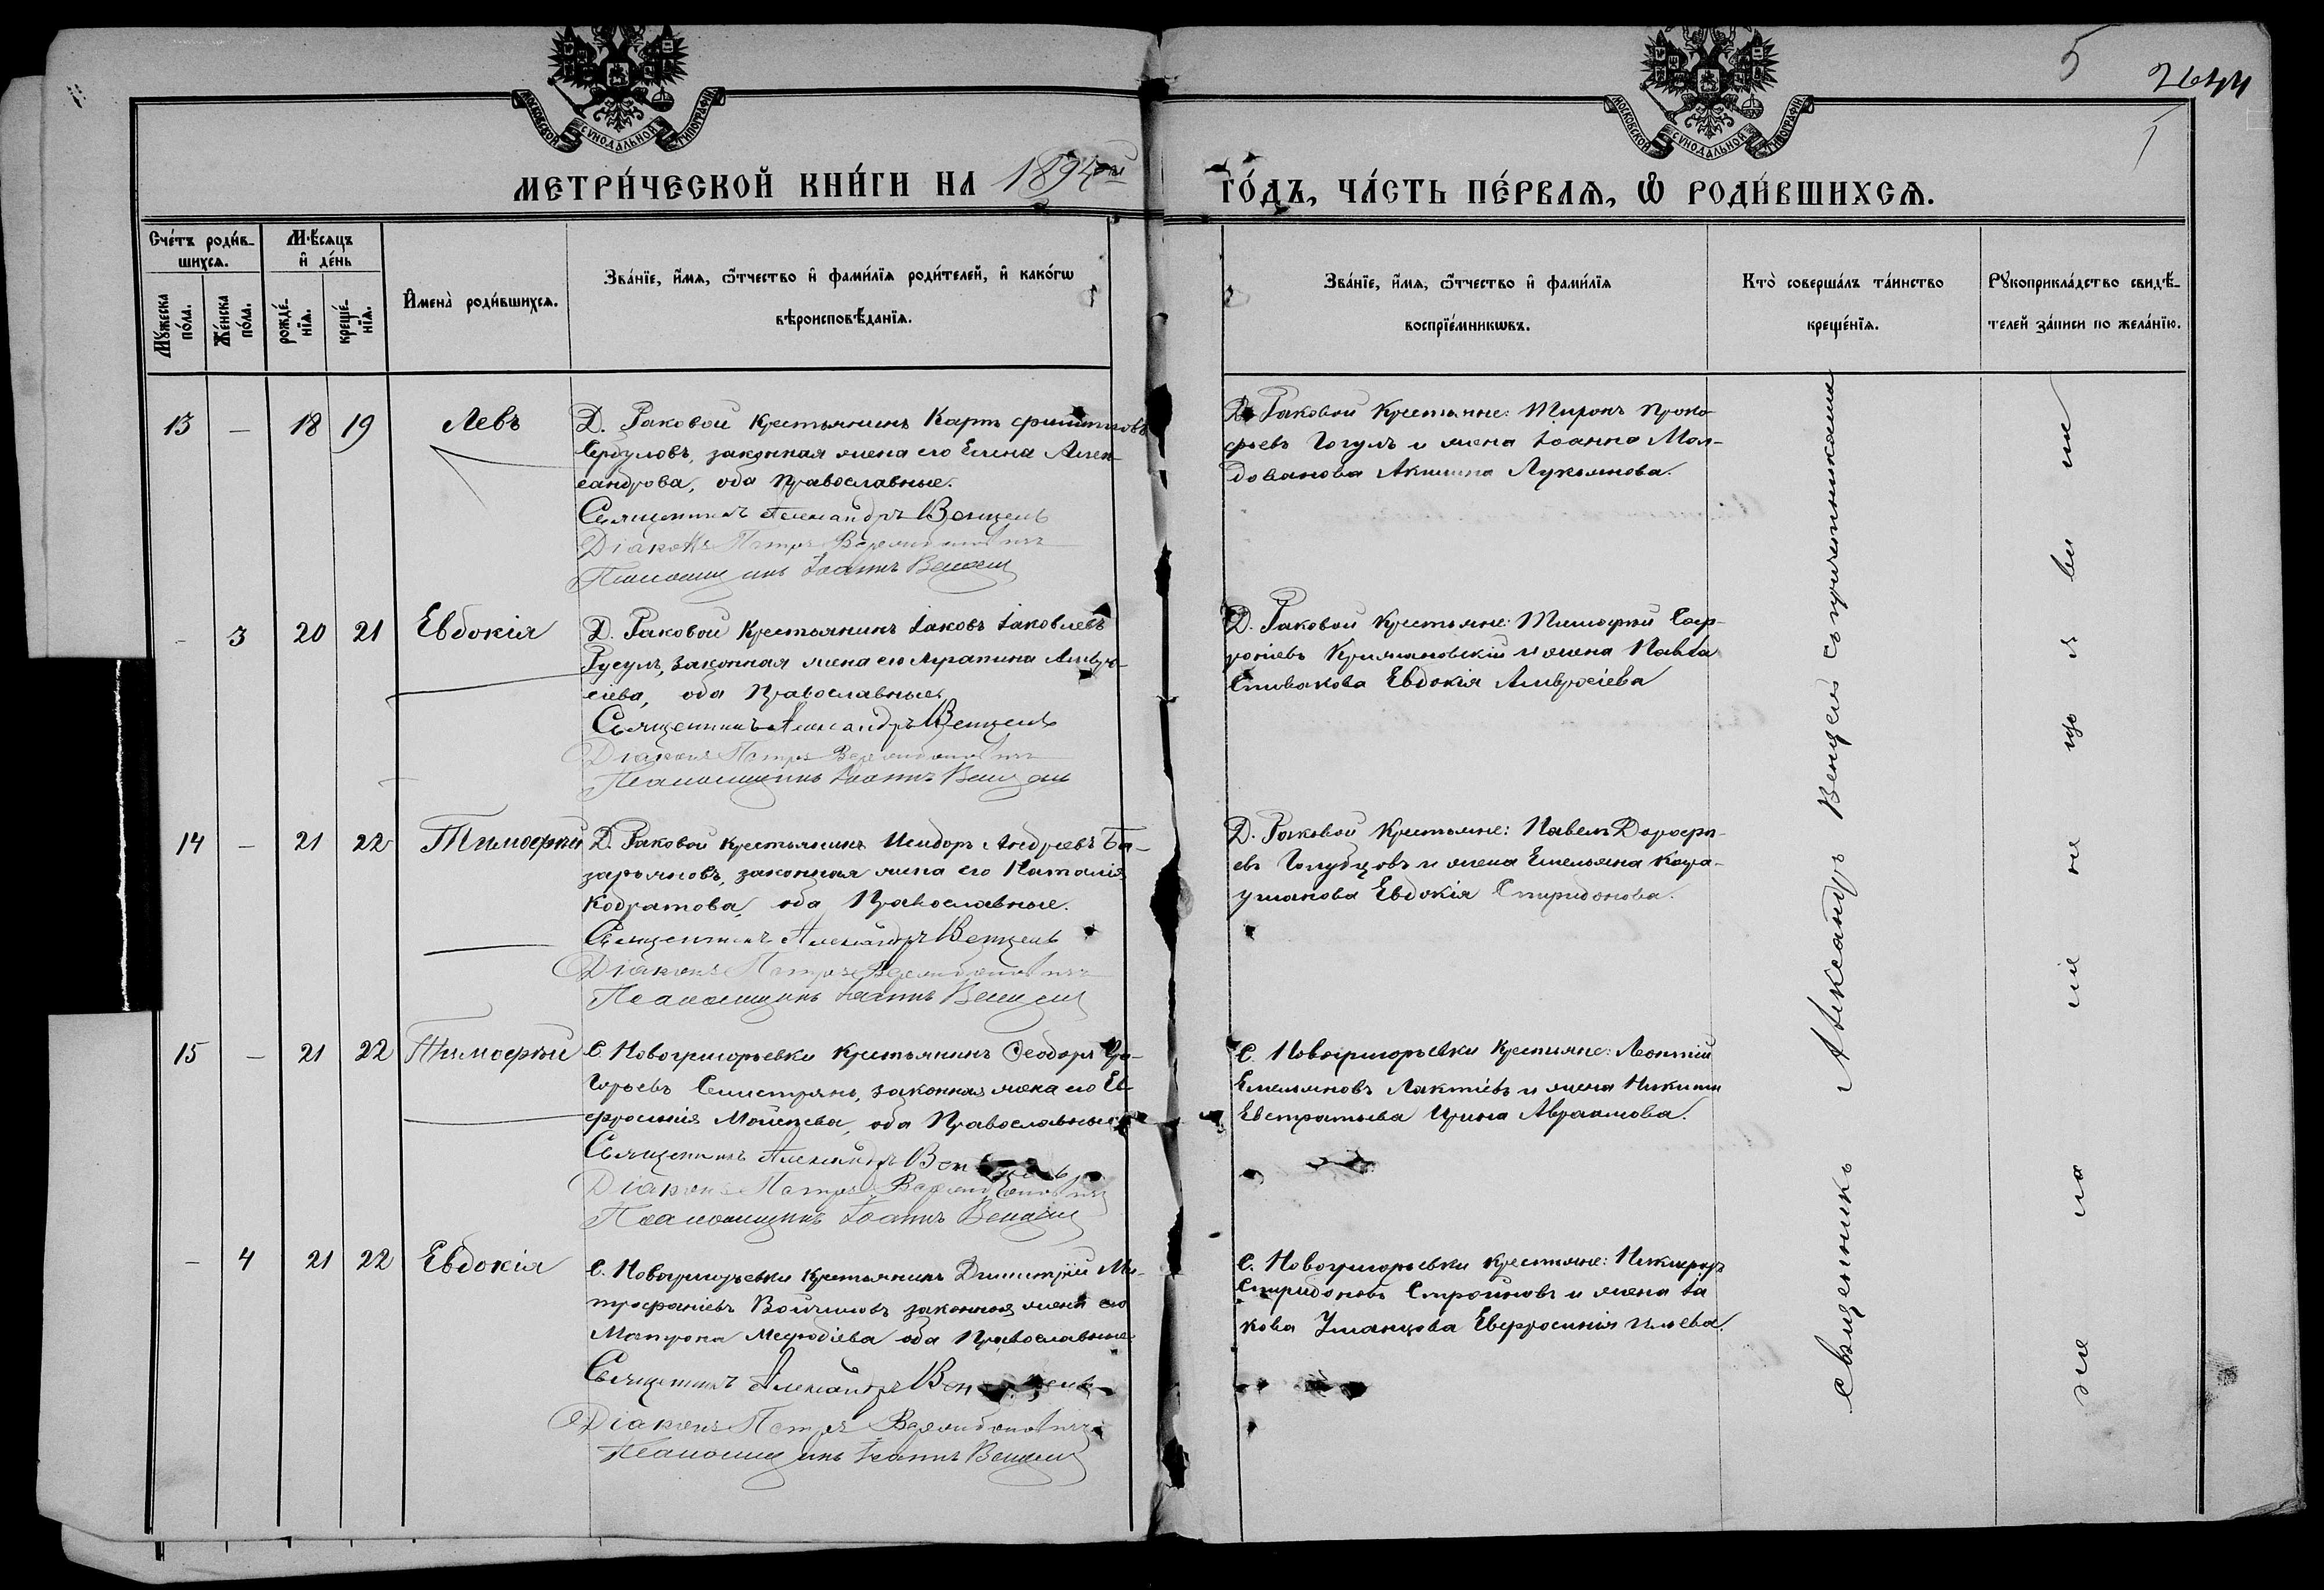 5
2644
МОСКОВСКОЙ СѴНОДАЛЬНОЙ ТИПОГРАФІИ
МОСКОВСКОЙ СѴНОДАЛЬНОЙ ТИПОГРАФІИ
МЕТРИ́ЧЕСКОЙ КНИ́ГИ НА 1894ый
ГО́ДЪ, ЧА́СТЬ ПЕ́РВАѦ, Ѡ҆ РОДИ́ВШИХСѦ.
Сче́тъ роди́в-
шихсѧ.
Мꙋ́жеска
по́ла.
Же́нска
по́ла.
Мѣ́сѧцъ
и҆ де́нь
рожде́-
нїѧ.
креще́-
нїѧ.
И҆мена̀ роди́вшихсѧ.
Зва́нїе, и҆́мѧ, ѻ҆́тчество и҆ фами́лїѧ роди́телей, и҆ како́гѡ
вѣроисповѣ́данїѧ.
Зва́нїе, и҆́мѧ, ѻ҆́тчество и҆ фами́лїѧ
воспрїе́мникѡвъ.
Кто̀ соверша́лъ та́инство
креще́нїѧ.
Рꙋкоприкла́дство свидѣ́-
телей за́писи по жела́нїю.
13 — 18 19 Левъ
Д. Раковой Крестьянинъ Карпъ
Сербуловъ, законная жена его Елена Алек-
сандрова, оба Православные.
Священникъ Александръ Венцель
Діаконъ Петръ
Псаломщикъ Іоаннъ Венцель
Д. Раковой Крестьяне: Миронъ Проко-
фьевъ Гогулъ и жена Іоанна Мол-
дованова Акилина Лукьянова.
- 3 20 21 Евдокія
Д. Раковой Крестьянинъ Іаковъ Іаковлевъ
Русулъ, законная жена его Агрипина Амвро-
сіева, оба Православные.
Священникъ Александръ Венцель
Діаконъ Петръ
Псаломщикъ Іоаннъ Венцель
Д. Раковой Крестьяне: Тимофей Соф-
роніевъ Крижановскій и жена Павла
Спивакова Евдокія Амвросіева
14 — 21 22 Тимофей
Д. Раковой Крестьянинъ Исидоръ Андреевъ Ба-
зарьяновъ, законная жена его Наталія
Кодратова, оба Православные.
Священникъ Александръ Венцель
Діаконъ Петръ
Псаломщикъ Іоаннъ Венцель
Д. Раковой Крестьяне: Павелъ Дорофе-
евъ Голубцовъ и жена Емельяна Кара-
уманова Евдокія Спиридонова.
15 — 21 22 Тимофей
С. Новогригорьевки Крестьянинъ Ѳеодоръ Гри-
горьевъ Семистрянъ, законная жена его Ев-
фросинія Мойсеева, оба Православные
Священникъ Александръ Венцель
Діаконъ Петръ
Псаломщикъ Іоаннъ Венцель
С. Новогригорьевки Крестьяне: Леонтій
Емельяновъ Лактіевъ и жена Никиты
Евстратьева Ирина Авраамова.
- 4 21 22 Евдокія
С. Новогригорьевки Крестьянинъ Димитрій Ми-
трофаніевъ Войчишовъ законная жена его
Матрона Мефодіева оба Православные
Священникъ Александръ Венцель
Діаконъ Петръ
Псаломщикъ Іоаннъ Венцель
С. Новогригорьевки Крестьяне: Никифоръ
Спиридоновъ Строиновъ и жена Іа
кова Уманцова Евфросинія Ильева.
священникъ Александръ Венцель съ причетниками